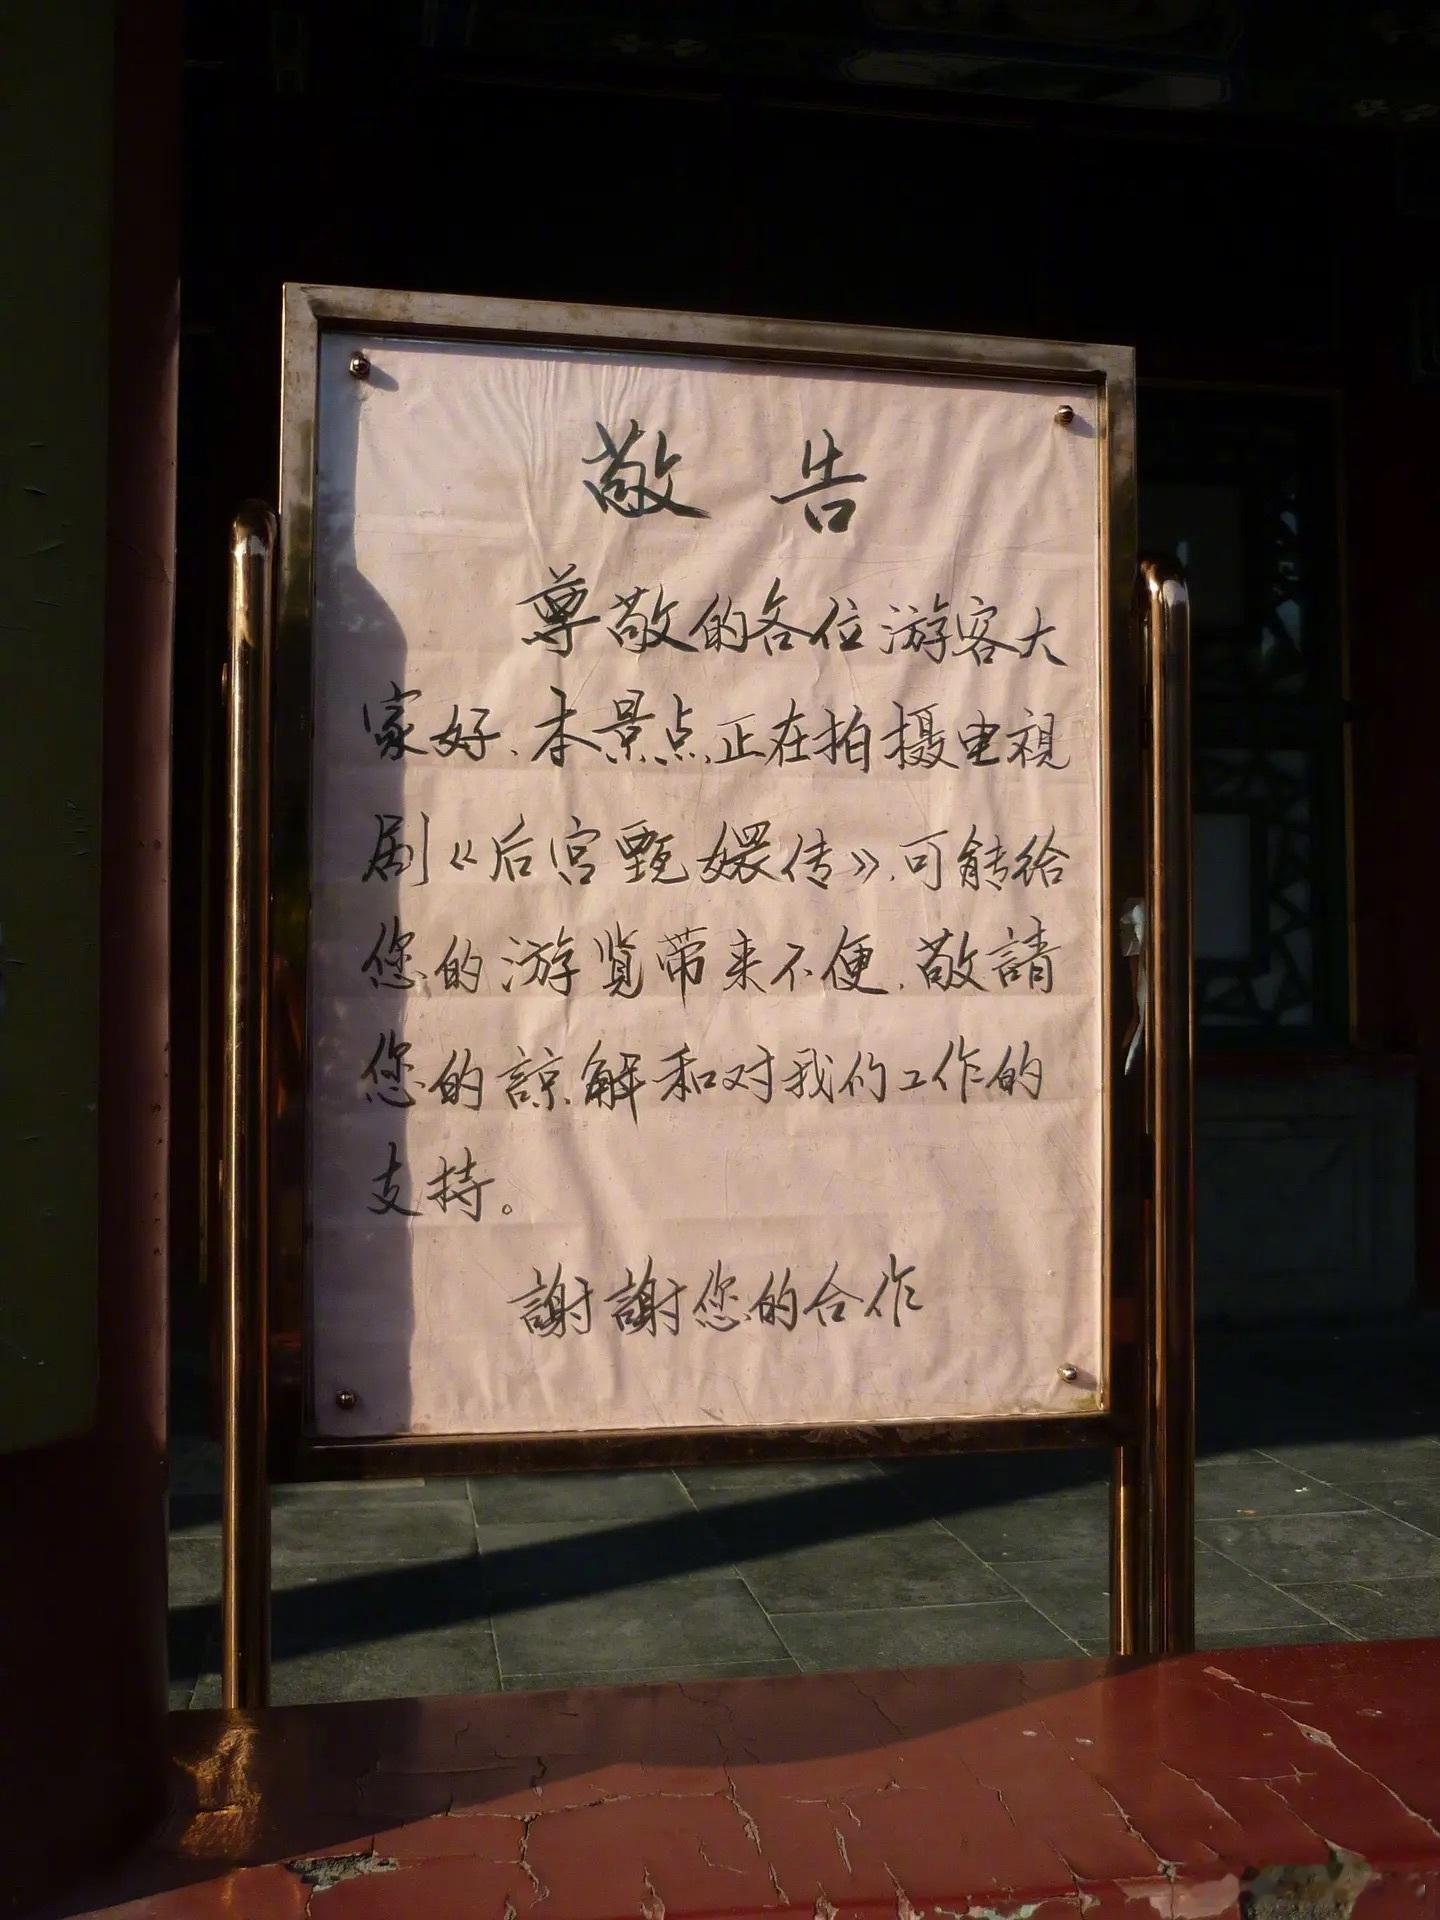 敬告
尊敬的各位游客大
家好、本景点正在拍摄电視
剧《后宫甄嬛传》,可能给
您的游览带来不便,敬請
您的諒解和对我们工作的
支持。
謝謝您的合作